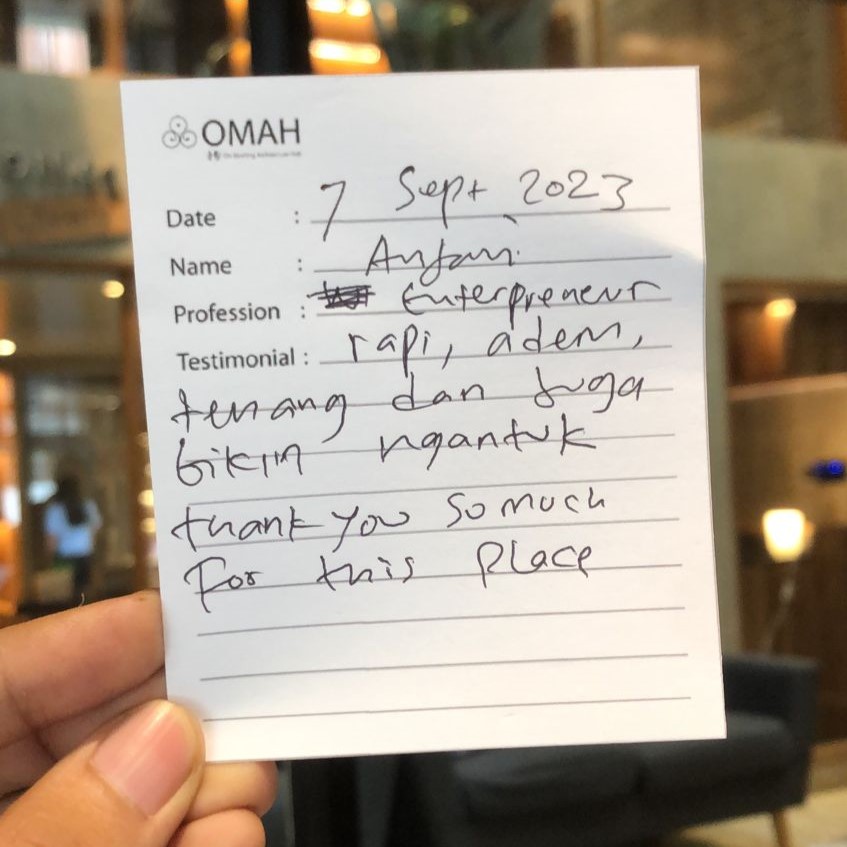 OMAH
Date : 7 Sept 2023
Name :
Profession : Enterpreneur
Testimonial : rapi, adem,
tenang dan juga
bikin ngantuk
thank you so much
For this place